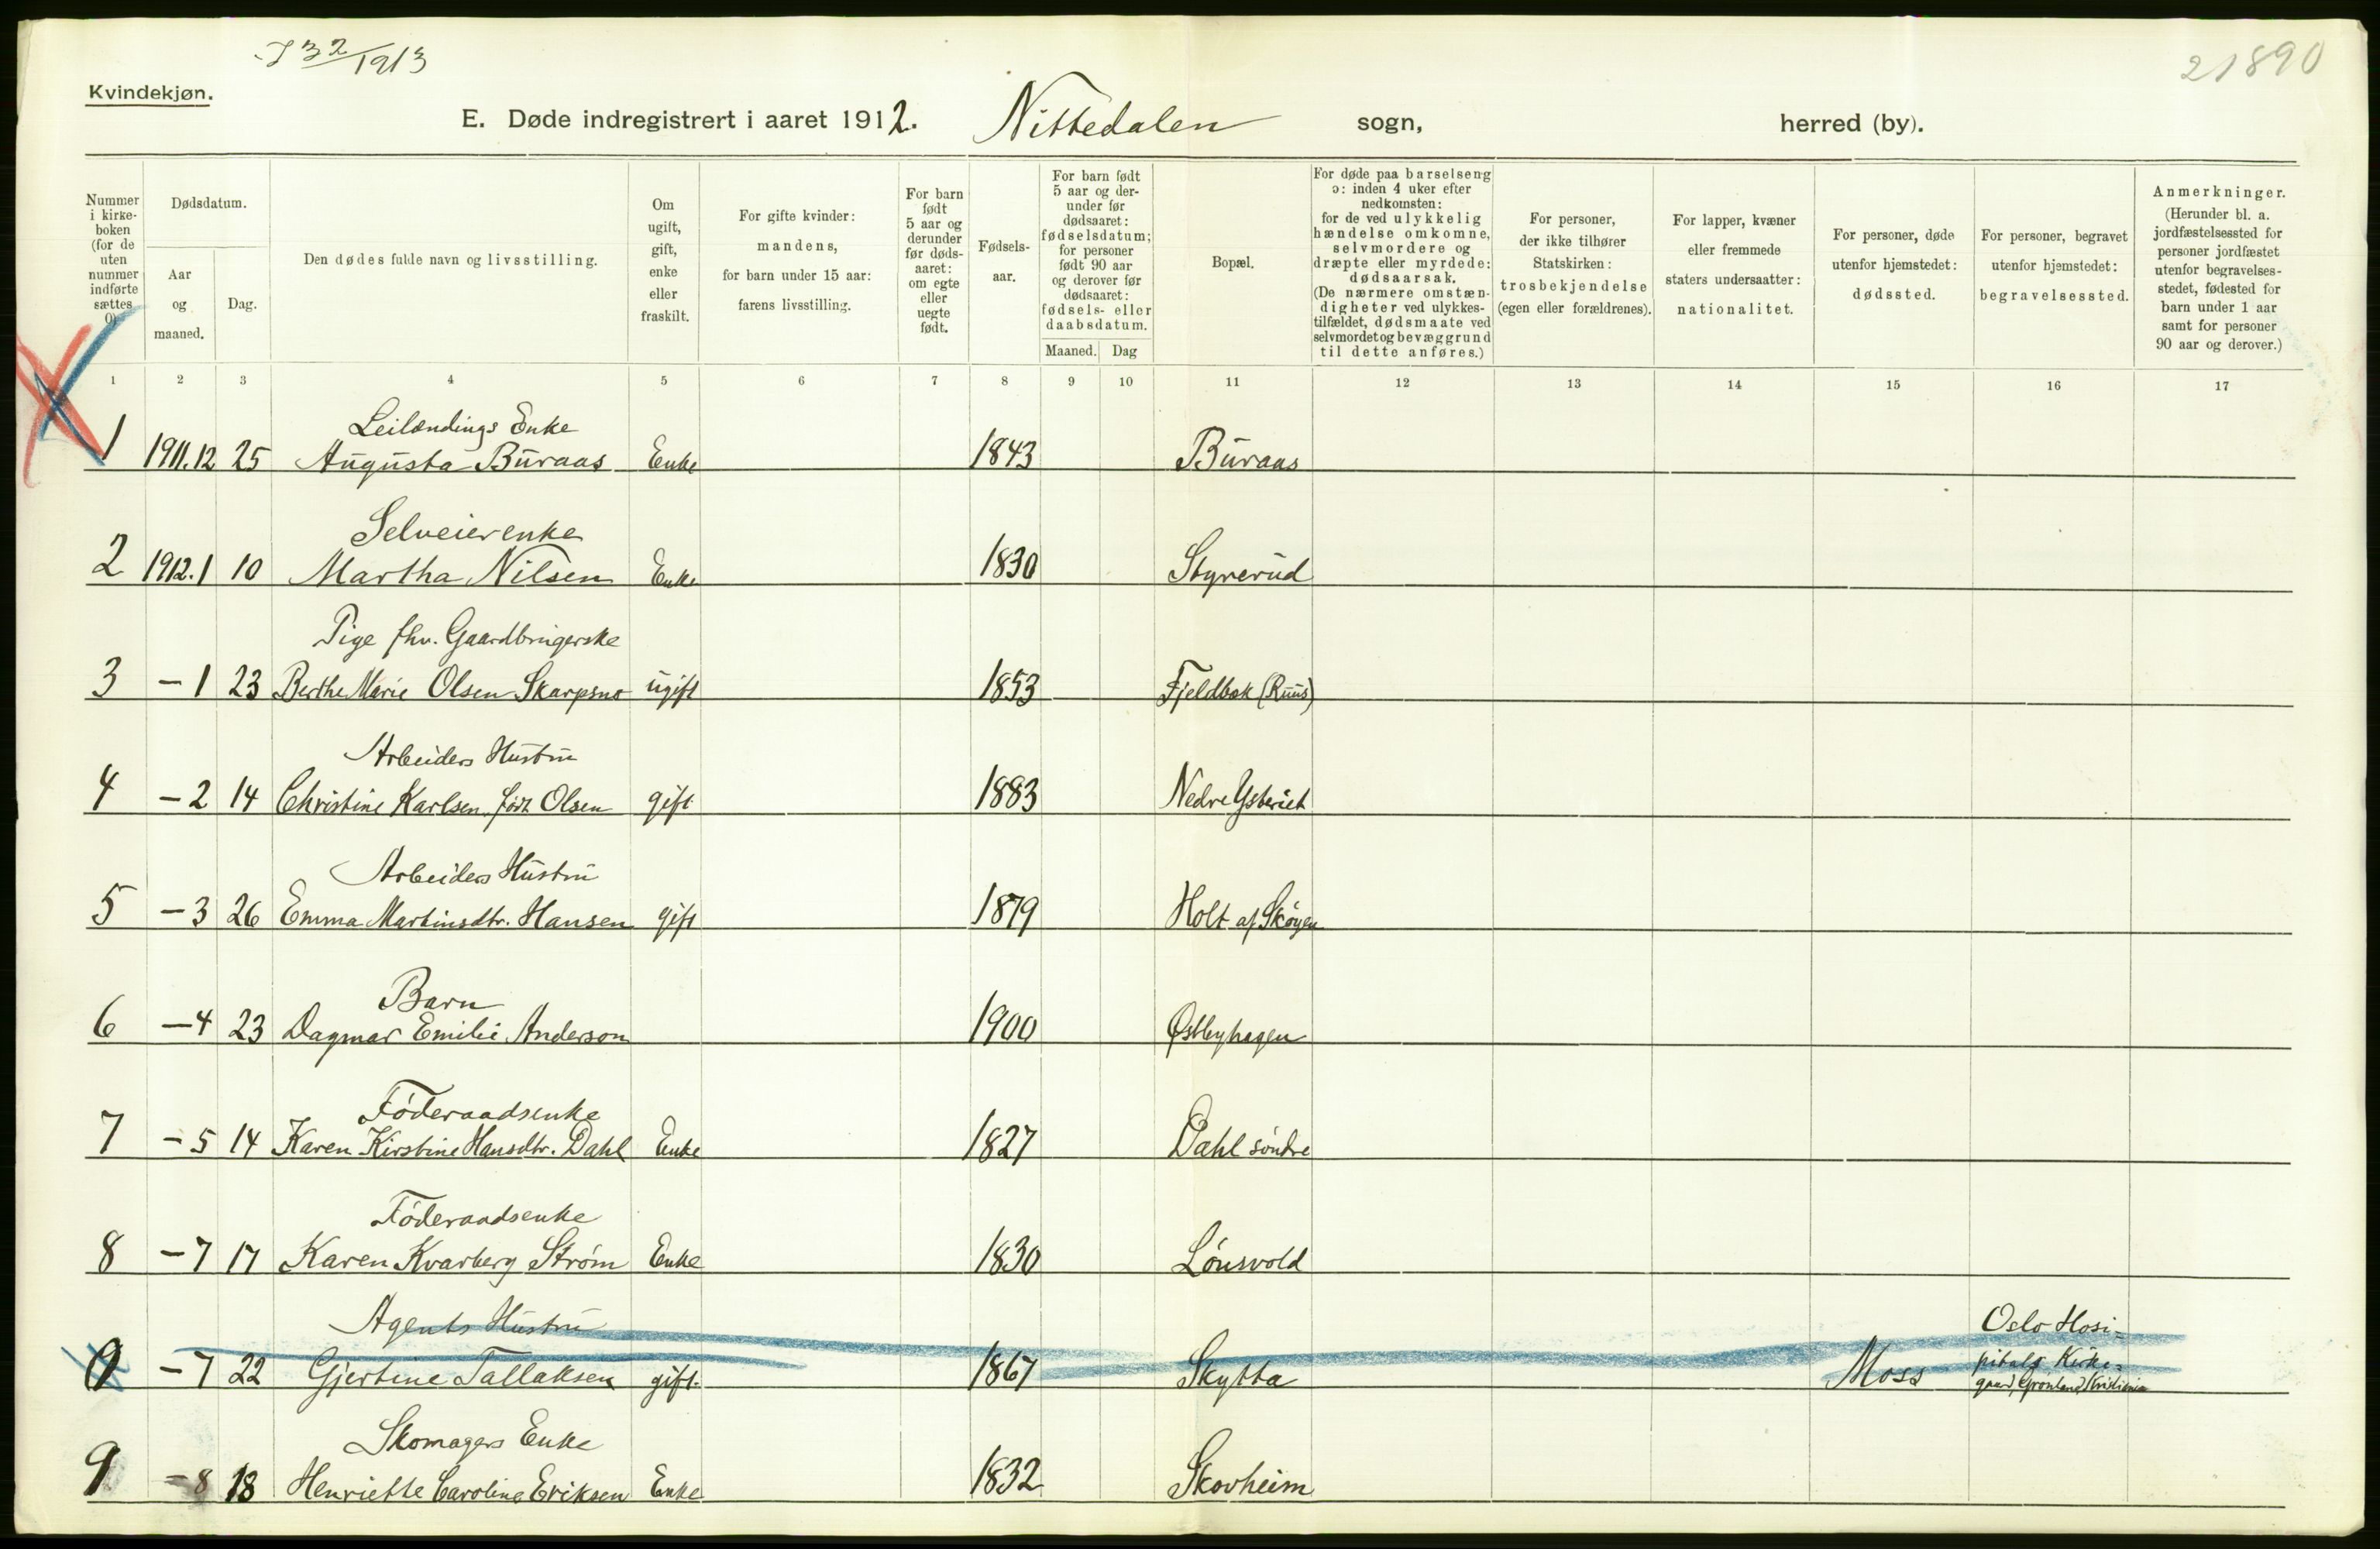 J 32/1913
21890
Kvindekjøn.
E. Døde indregistrert i aaret 1912. Nittedalen sogn, herred (by).
Nummer i kirke-boken (for de uten nummer indførte sættes 0)
Dødsdatum.
Aar og maaned.
Dag.
Den dødes fulde navn og livsstilling.
Om ugift, gift, enke eller fraskilt.
For gifte kvinder: mandens, for barn under 15 aar: farens livsstilling.
For barn født 5 aar og derunder før døds-aaret: om egte eller uegte født.
Fødsels-aar.
For barn født 5 aar og der-under før dødsaaret: fødselsdatum; for personer født 90 aar og derover før dødsaaret: fødsels- eller daabsdatum.
Maaned. Dag
Bopæl.
For døde paa barselseng ɔ: inden 4 uker efter nedkomsten: for de ved ulykkelig hændelse omkomne, selvmordere og dræpte eller myrdede: dødsaarsak. (De nærmere omstæn-digheter ved ulykkes-tilfældet, dødsmaate ved selvmordet og bevæggrund til dette anføres.)
For personer, der ikke tilhører Statskirken: trosbekjendelse (egen eller forældrenes).
For lapper, kvæner eller fremmede staters undersaatter: nationalitet.
For personer, døde utenfor hjemstedet: dødssted.
For personer, begravet utenfor hjemstedet: begravelsessted.
Anmerkninger. (Herunder bl. a. jordfæstelsessted for personer jordfæstet utenfor begravelses-stedet, fødested for barn under 1 aar samt for personer 90 aar og derover.)
1 2 3 4 5 6 7 8 9 10 11 12 13 14 15 16 17
Leilændings Enke
1 1911.12 25 Augusta Buraas Enke 1843 Buraas
Selveierenke
2 1912.1 10 Martha Nilsen Enke 1830 Styrerud
Pige fhv. Gaardbrugerske
3 – 1 23 Berthe Marie Olsen Skarpsno ugift 1853 Fjeldbak (Ruus)
Arbeiders Hustru
4 – 2 14 Christine Karlsen, født Olsen gift 1883 Nedre
Arbeiders Hustru
5 – 3 26 Emma Martinsdtr. Hansen gift 1879 Holt af Skøyen
Barn
6 – 4 23 Dagmar Emilie Anderson 1900 Østbyhagen
Føderaadsenke
7 – 5 14 Karen Kirstine Hansdtr. Dahl Enke 1827 Dahl søndre
Føderaadsenke
8 – 7 17 Karen Kvarberg Strøm Enke 1830 Lønsvold
Agents Hustru Oslo Hosi=
0 – 7 22 Gjertine Tallaksen gift 1867 Skytta Moss pitals Kirke=
gaard, Grønland, Kristiania
Skomagers Enke
9 – 8 18 Henriette Caroline Eriksen Enke 1832 Skovheim